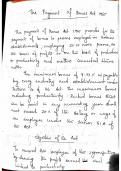 The Payment of Bonus Act 1965
The payment of Bonus Act 1965 provides for the
payment of bonus to persons employed in certain
establishments, employing 20 or more persons, on
the basis of profits or on the basis of production
or productivity and matters connected therewith.
The minimum bonus of 8.33% is payable
by every industry and establishment under
section 10 of the Act. The maximum bonus
including productivity linked bonus that
can be paid in any accounting year shall
not exceed 20% of the salary or wage of
an employee under the section 31 A of
the Act.
Objective of the Act
To reward the employees of the organisation
by sharing the profits earned and
linked to productivity